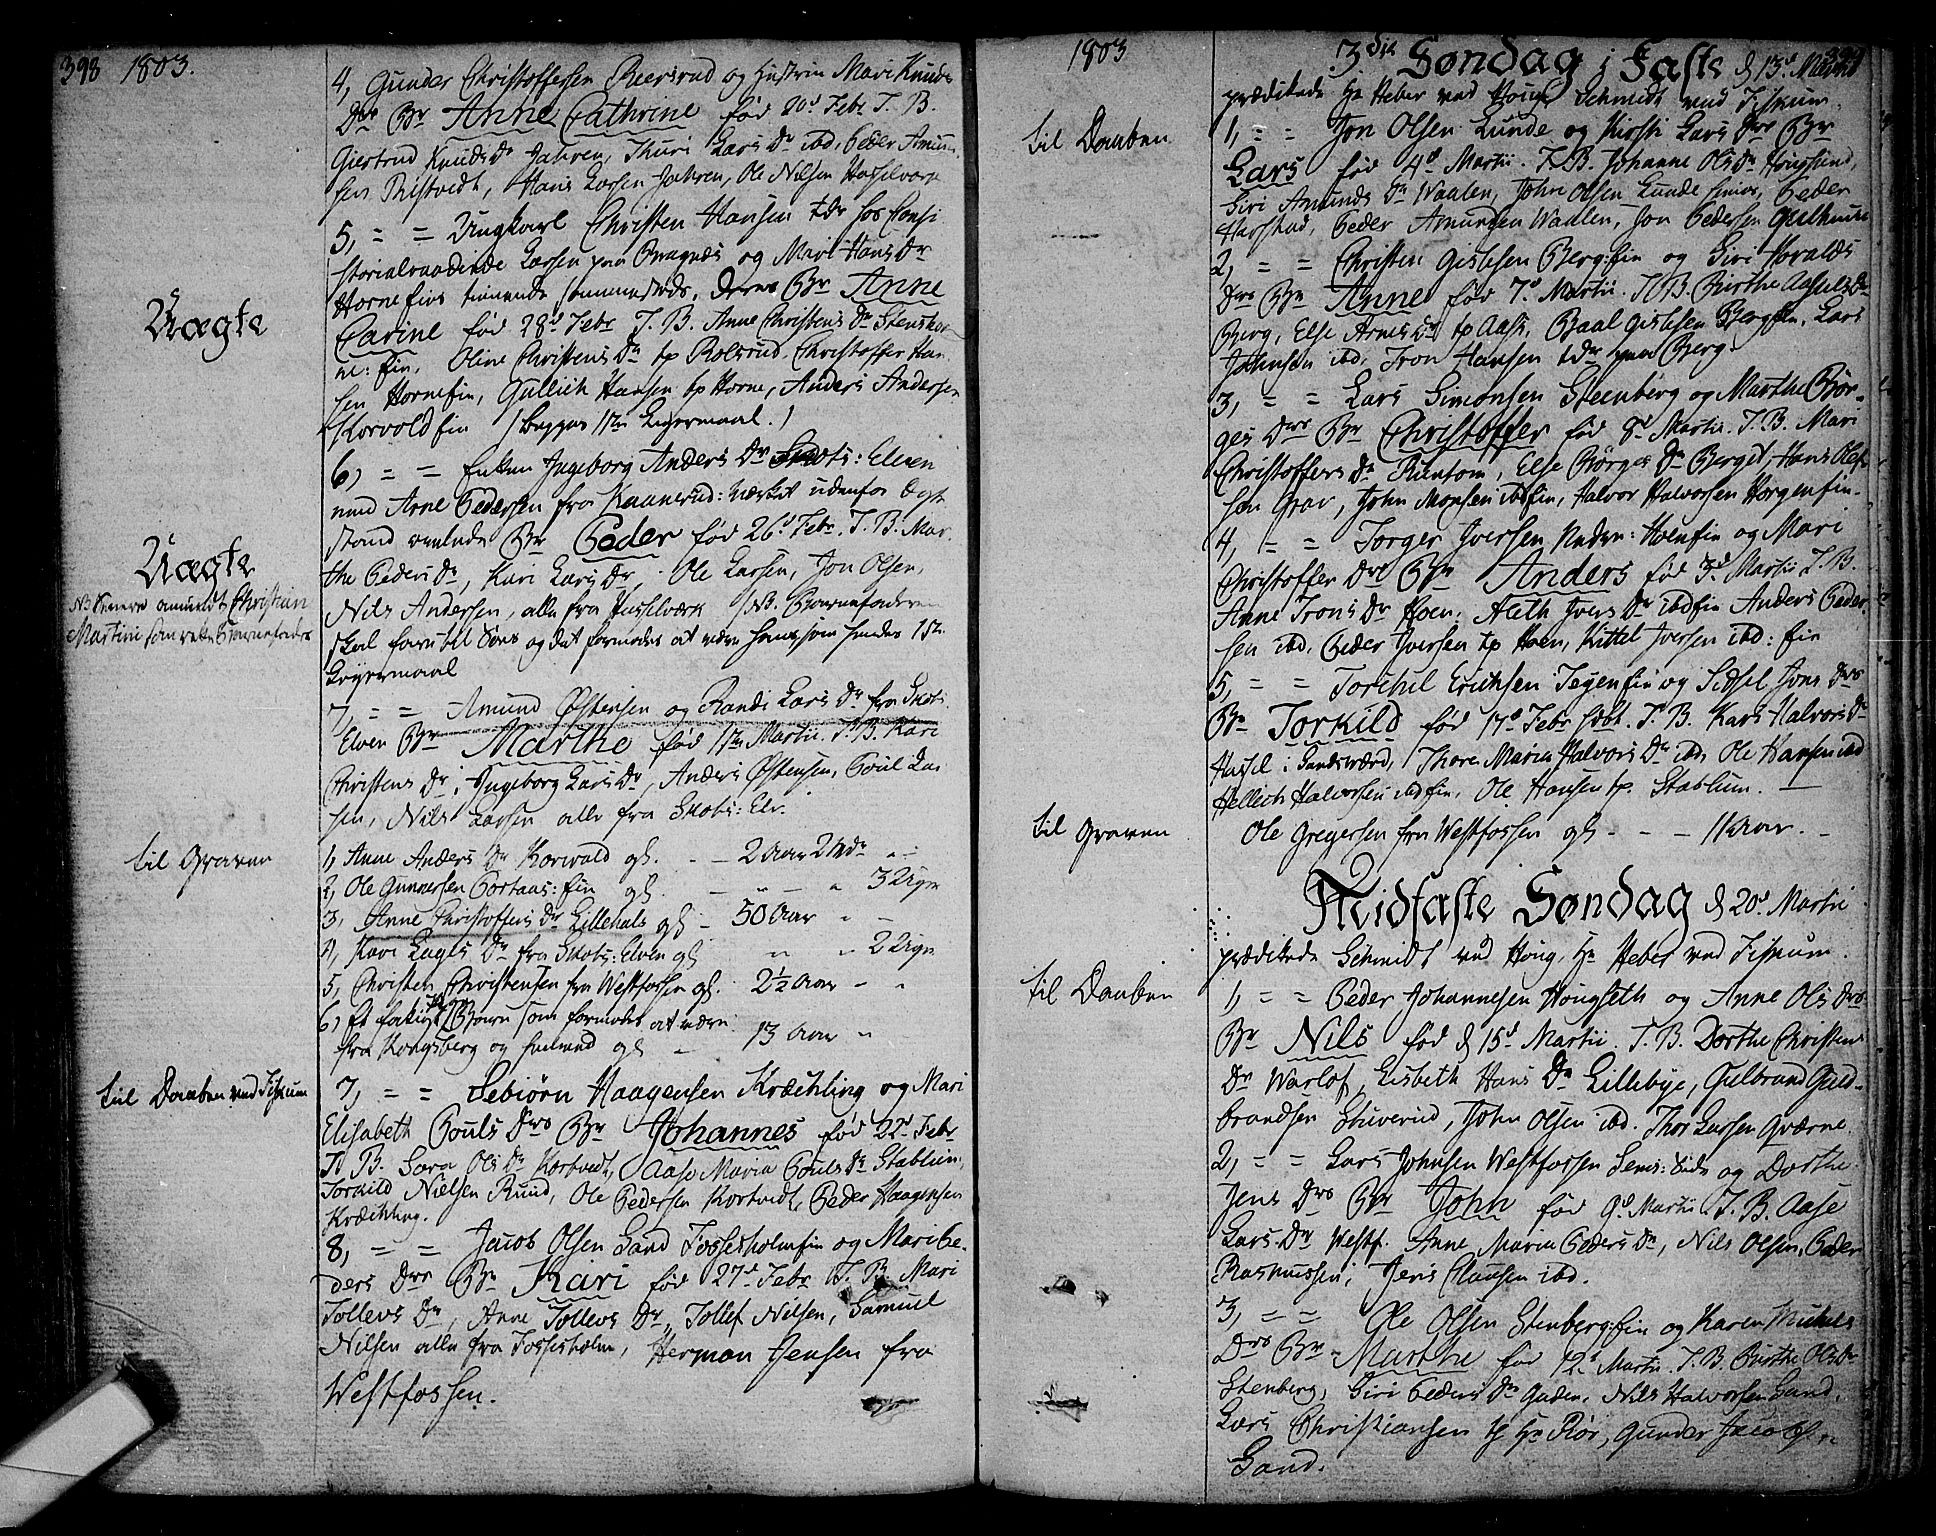 398 1803.
4, Gunder Christoffersen Beersrud og Hustrue Mari Knuds
Dr Bn Anne Cathrine født 20d Febr T. B.
Giertrud Knuds Dr Jahren, Thuri Lars Dr ibd, Peder Amun
sen Thistvedt, Hans Larsen Jahren, Ole Nilsen Hasselværk
5, = = Ungkarl Christen Hansen tdr hos Consi
storialraadinde Larsen paa Bragnæs og Mari Hans Dr
Horne fin tienende sammestæds, deres Bn Anne
Carine født 28d Febr T. B. Anne Christens Dr Stenshor
ne: fin, Oline Christens Dr tp Rolsrud, Christoffer Han
sen Hornefin, Gullich Hansen tp Horne, Anders Andersen
Korvoldfin (begges 1ste Leyermaal.)
Uægte
6, = = Enken Ingeborg Anders Dr Skots: Elven
med Arne Pedersen fra Kaanerud: Værket udenfor Ægte
stand avlede Bn Peder født 26d Febr. T. B. Mar
the Peders Dr, Kari Lars Dr, Ole Larsen, Jon Olsen,
Nils Andersen, alle fra Hasselværk (NB. Barnefaderen
skal faret til Søes og det formodes at være hans som hendes 1ste
Leyermaal
Uægte
NB Senere anmeldt Christian
Martini som rette Barnefader
7, = = Amund Østensen og Randi Lars Dr fra Skots
Elven Bn Marthe født 1ste Martii. T. B. Kari
Christens Dr, Ingeborg Lars Dr, Anders Østensen, Poul La
sen, Nils Larsen alle fra Skots: Elv.
til Graven
1, Anne Anders Dr Korvald gl. - - 2 Aar 2 Mdr „ -
2, Ole Gunnersen Portaas: fin gl. - „ - „ 3 Uger
3, Anne Christoffers Dr Lillehals gl - 50 Aar „ -
4, Kari Lages Dr fra Skots: Elven gl „ „ 2 Uger
5, Christen Christensen fra Westfossen gl. 2½ Aar - „
6, Et fattigt Barn som formodes at være
fra Kongsberg og gl - 13 Aar „
til Daaben ved Fiskum
7, = = Sebiørn Haagensen Kræchling og Mari
Elisabeth Pouls Drs Bn Johannes født 22d Febr
T. B. Sara Ols Dr Kortvedt, Aase Maria Pouls Dr Stablum,
Torkild Nielsen Rund, Ole Pedersen Kortvidt, Peder Haagensen
Kræchling.
8, = = Jacob Olsen Sand Fossesholmfin og Mari Pe-
ders Drs Bn Kari født 27d Febr T. B. Mari
Tollevs Dr, Anne Tollevs Dr, Tollef Nilsen, Samuel
Nilsen alle fra Fossesholm, Herman Jensen fra
Westfossen.
1803 399
3die Søndag i Faste d 13d Martii
prædikede Hr Heber ved Houg, Schmidt ved Fiskum.
til Daaben
1, = = Jon Olsen Lunde og Kirsti Lars Drs Bn
Lars født 4d Martii. T. B. Johanne Ols Dr Hougsund,
Siri Amunds Dr Waalen, John Olsen Lunde senior, Peder
Harstad, Peder Amundsen Waalen, Jon Pedersen
2, = = Christen Gislesen Berg: fin og Siri Joralds
Drs Bn Anne født 7d Martii. T. B. Birthe Aasels Dr
Berg, Else Arnes Dr tp Aass, Paal Gislesen Bergfin, Lars
Johnsen ibd, Tron Hansen tdr paa Berg.
3, = = Lars Simonsen Steenberg og Marthe Bør-
ges Drs Bn Christoffer født 8d Martii. T. B. Mari
Christoffers Dr Runtom, Else Børges Dr Berget, Hans Olef
sen Grav, John Monsen ibdfin, Halvor Halvorsen Horgenfin.
4, = = Torger Iversen Neder: Hoenfin og Mari
Christoffer Drs Bn Anders født 3d Martii T. B.
Anne Trons Dr Hoen, Aleth Ivers Dr ibdfin Anders Peder
sen ibd, Peder Iversen tp Hoen, Kittel Iversen ibd: fin
5, = = Torchil Erichsen Tegenfin og Sidsel Jons Drs
Bn Torkild født 17d Febr. T. B. Kari Halvors Dr
Hassel i Sandsværd, Thore Maria Halvors Dr ibd, Ole Hansen ibd
Hellich Halvorsen ibdfin, Ole Hansen tp. Stablum.
til Graven
Ole Gregersen fra Westfossen gl - - - 11 Aar. -
Midfaste Søndag d 20d Martii
prædikede Schmidt ved Houg, Hr Heber ved Fiskum.
til Daaben
1, = = Peder Johannesen Hougseth og Anne Ols Drs
Bn Nils født d 15d Martii. T. B. Dorthe Christens
Dr Warlof, Lisbeth Hans Dr Lillebye, Gulbrand Guld-
brandsen Stuverud, John Olsen ibd. Thor Larsen Qværne.
2, = = Lars Johnsen Westfossen Sems: Side og Dorthe
Jens Drs Bn John født 9d Martii T. B. Aase
Lars Dr Westf. Anne Maria Peders Dr, Nils Olsen, Peder
Rasmussen, Jens Clausen ibd.
3, = = Ole Olsen Stenberg: fin og Karen Michels
Drs Bn Marthe født 12d Martii. T. B. Birthe Ols Dr
Stenberg, Siri Peders Dr Gaden, Nils Halvorsen Sand,
Lars Christiansen Hr Riør, Gunder Jacobsen
Sand.